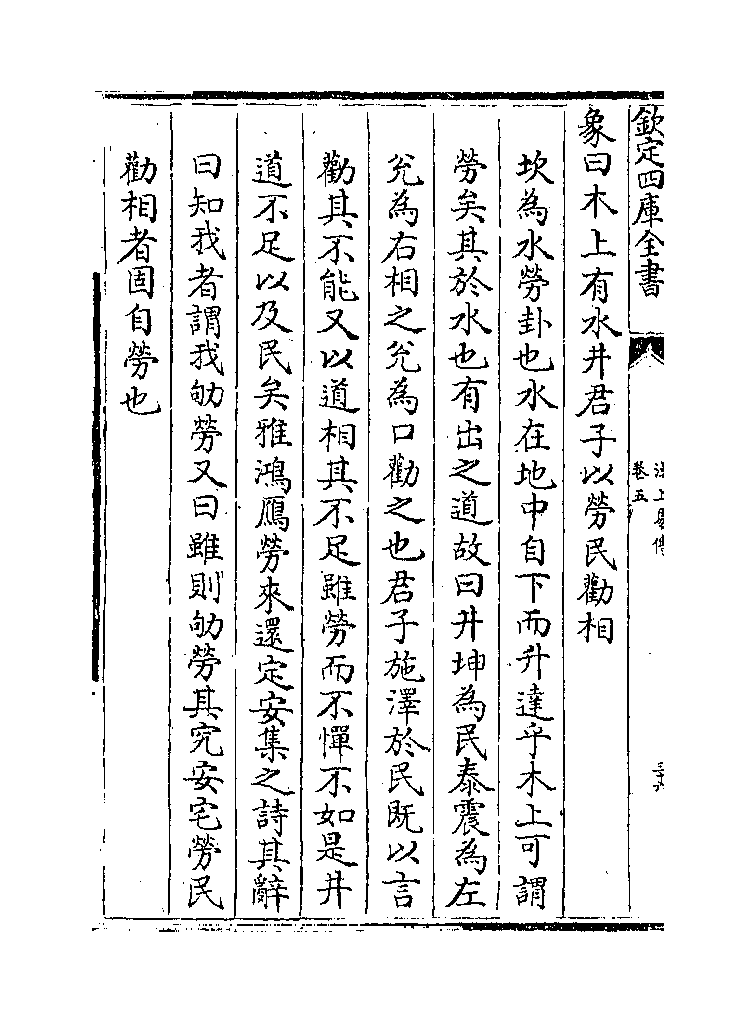 欽定四庫全書
卷五
象曰木上有水井君子以勞民勸相
坎為水勞卦也水在地中自下而升達乎木上可謂
勞矣其於水也有出之道故曰升坤為民泰震為左
兊為右相之兊為口勸之也君子施澤於民既以言
勸其不能又以道相其不足雖勞而不憚不如是井
道不足以及民矣雅鴻鴈勞來還定安集之詩其辭
曰知我者謂我劬勞又曰雖則劬勞其究安宅勞民
勸相者固自勞也